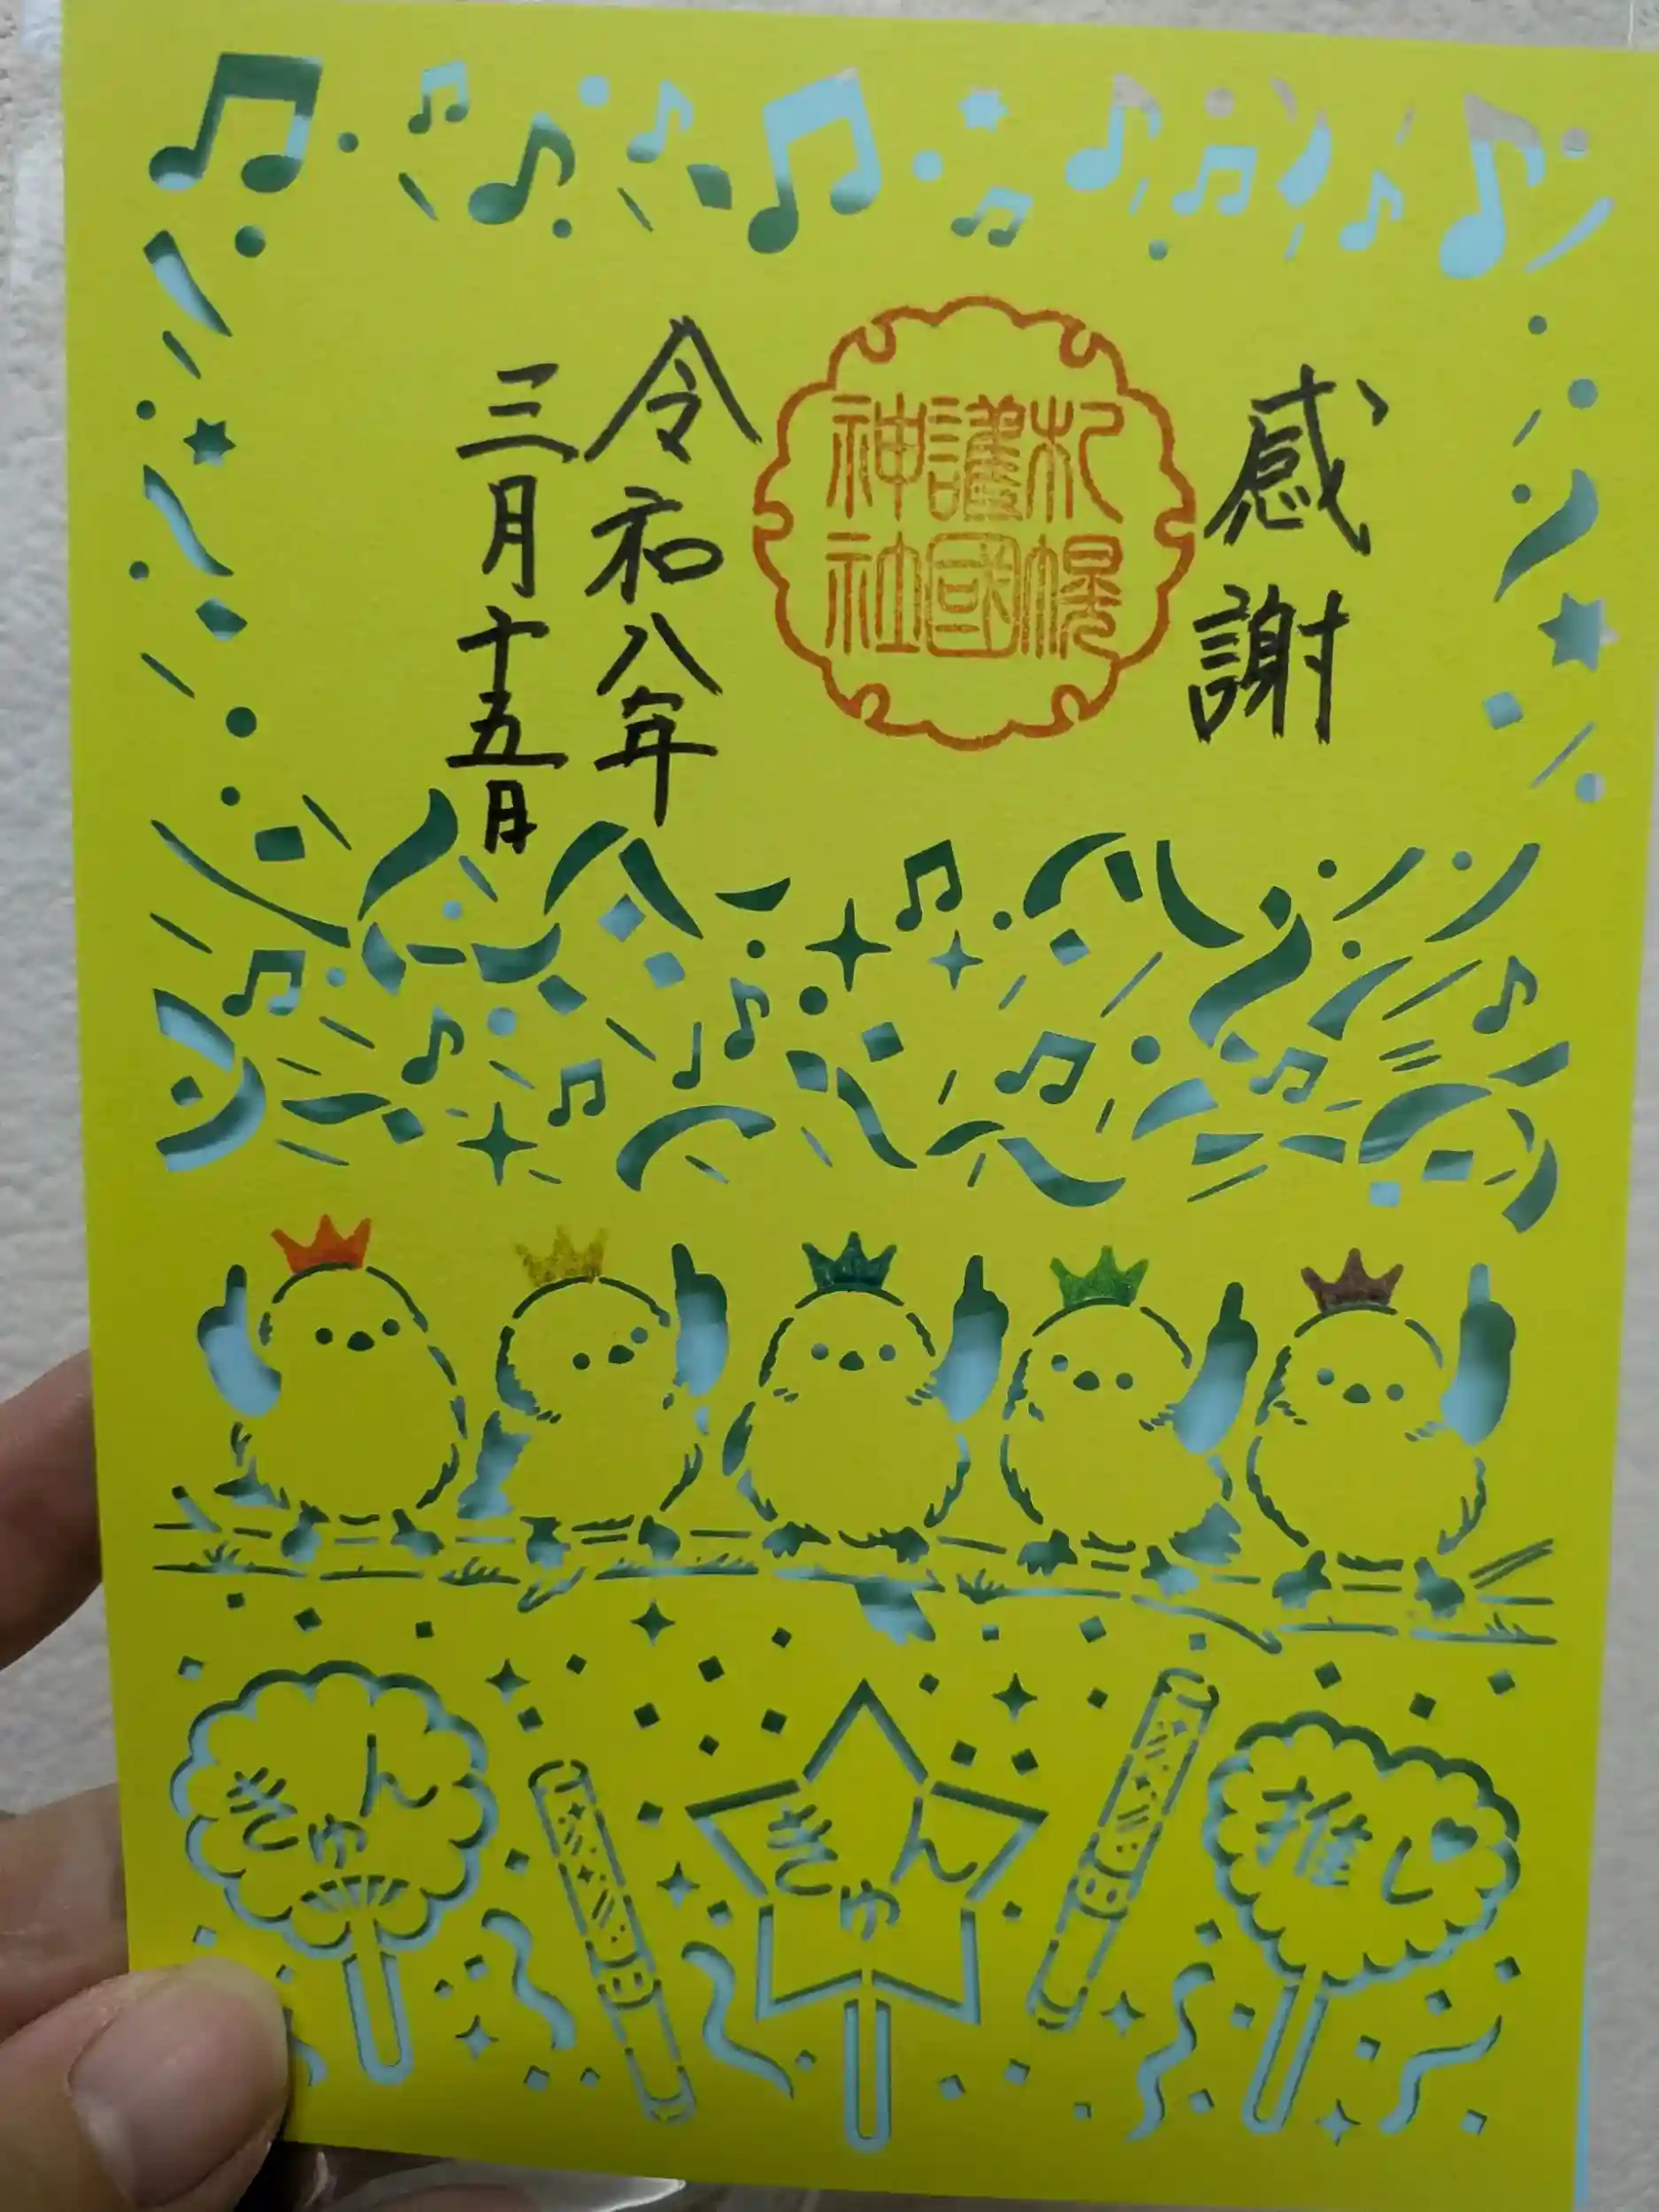 感謝
札幌
護國
神社
令和八年
三月十五日
きゅん
きゅん
推し